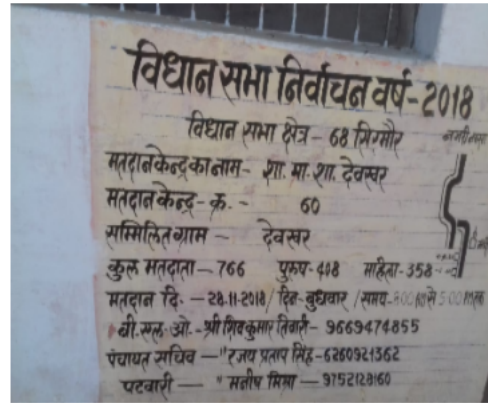 विधान सभा निर्वाचन वर्ष-2018
विधान सभा क्षेत्र - 68 सिरमौर
नजरी नक्शा
मतदान केन्द्र का नाम - शा. मा. शा. देवखर
मतदान केन्द्र - क्र. - 60
सम्मिलित ग्राम - देवखर
कुल मतदाता - 766 पुरुष - 408 महिला - 358
मतदान दि. - 28-11-2018 / दिन - बुधवार / समय - 8:00 से 5:00
बी.एल. ओ. - श्री शिवकुमार तिवारी - 9669474855
पंचायत सचिव - " रजय प्रताप सिंह - 6260921362
पटवारी - " मनीष मिश्रा - 9752128160